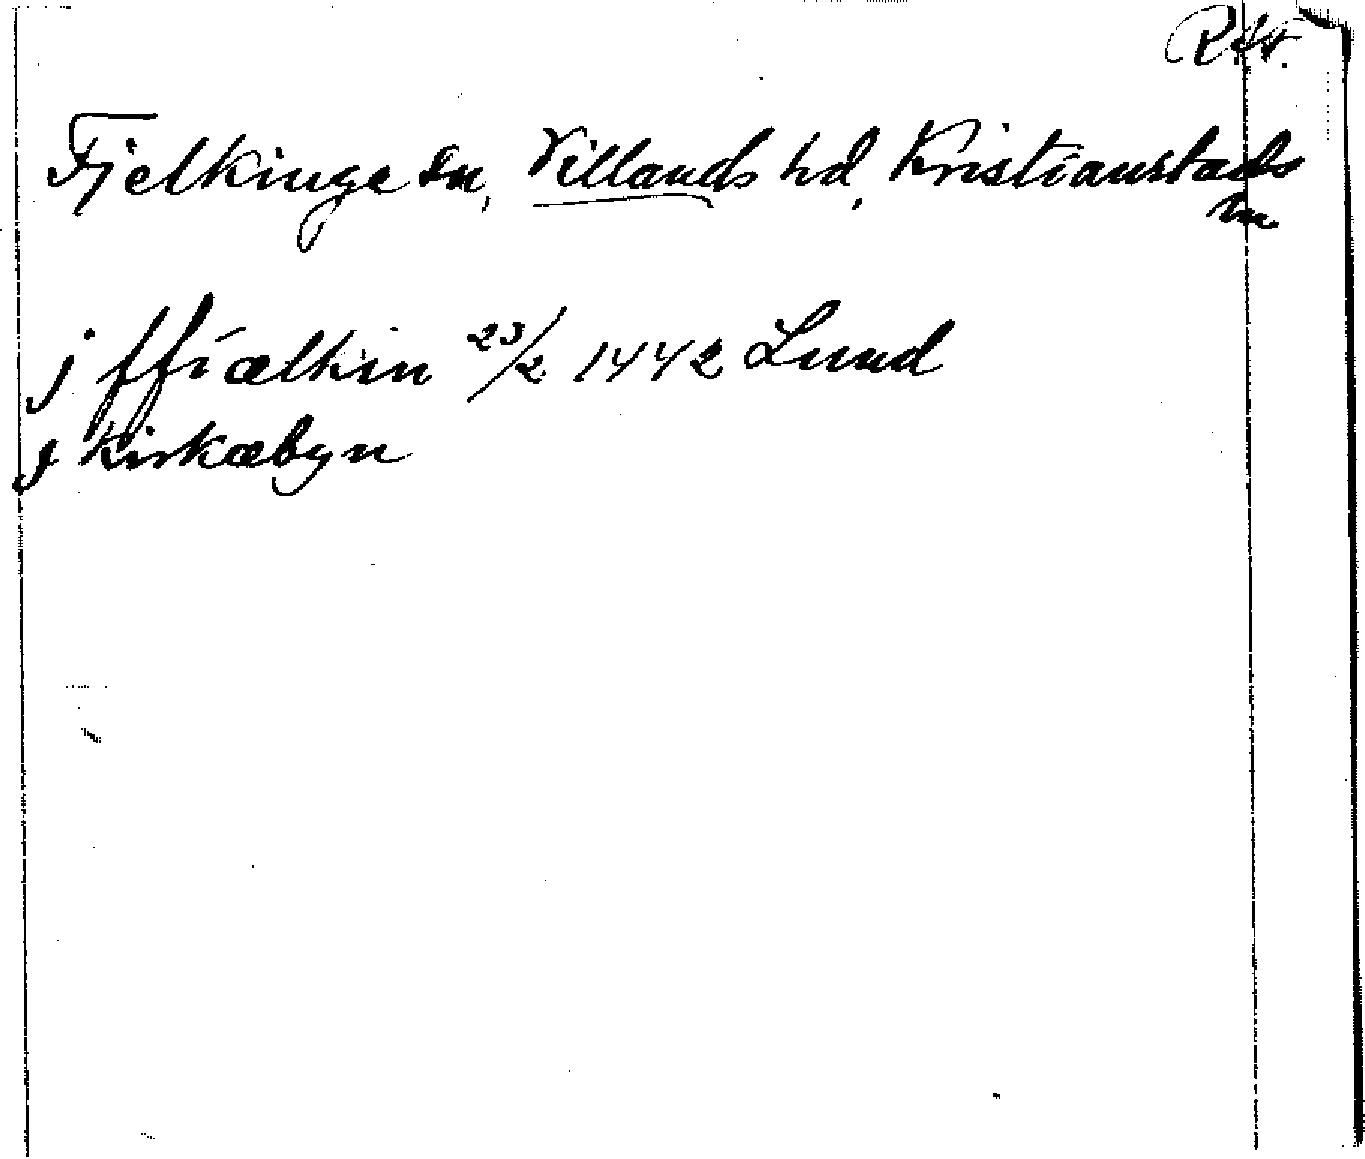 R.Ar.
Fjelkinge sn, Villands hd, Kristianstads
ln
j ffiælkin 23/2 1442 Lund
j kirkæbyn